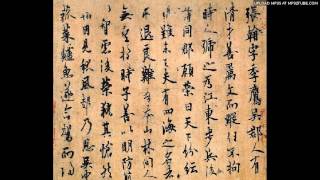 張翰字季鷹吳郡人有
清才善屬文而縱任不拘
時人號之為江東步兵後
謂同郡顧榮曰天下紛紜
禍難未已夫有四海之名者
求退良難吾本山林間人
無望於時子善以明防前
以智慮後榮執其愴然
翰因見秋風起乃思吳中
菰菜鱸魚遂命駕而歸
TUNESTOTUBE.COM